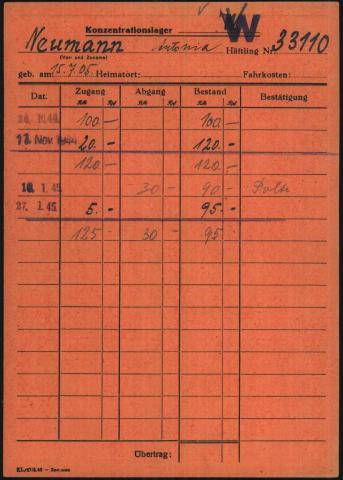 Konzentrationslager W
Neumann Antonia Häftling Nr. 33110
(Vor- und Zuname)
geb. am: 15.7.05 Heimatort: Fahrkosten:
Dat. Zugang Abgang Bestand Bestätigung
RM Rpf RM Rpf RM Rpf
100 — 100. —
Nov. 1944 20. — 120. —
120 — 120 —
1. 45 30 — 90 — Polte
27. 1. 45 5. — 95. —
125 — 30 — 95
Übertrag: